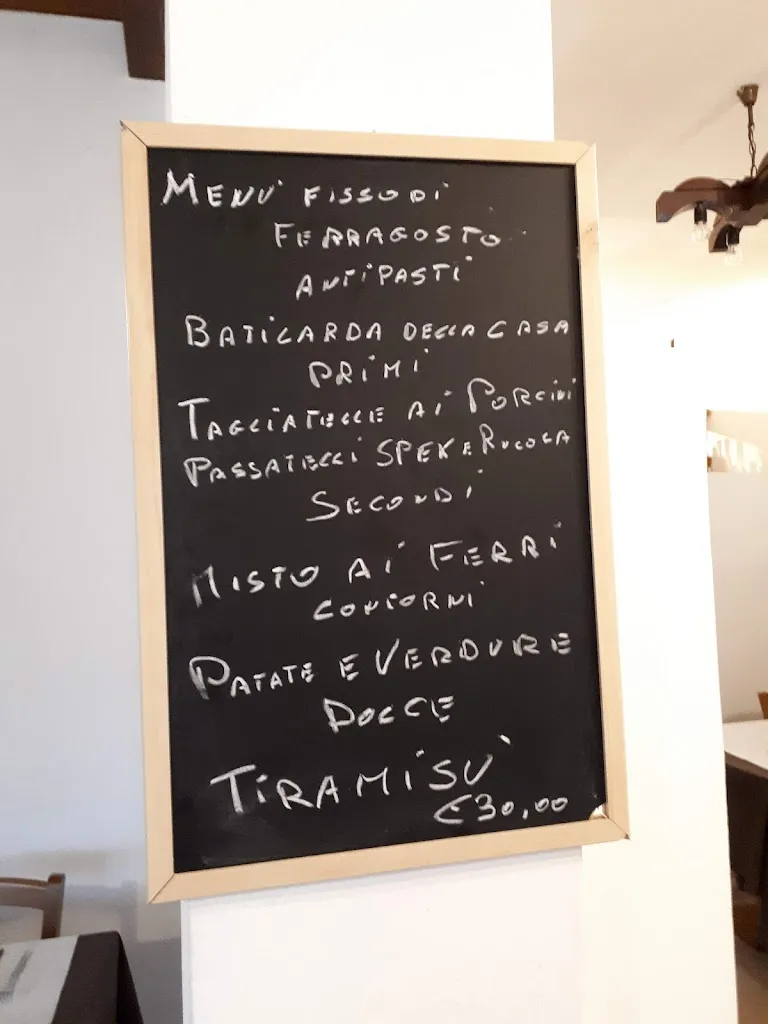 MENU' FISSO DI
FERRAGOSTO
ANTIPASTI
BATILARDA DELLA CASA
PRIMI
TAGLIATELLE AI PORCINI
PASSATELLI SPEK E RUCOLA
SECONDI
MISTO AI FERRI
CONTORNI
PATATE E VERDURE
DOLCE
TIRAMISU'
€30,00